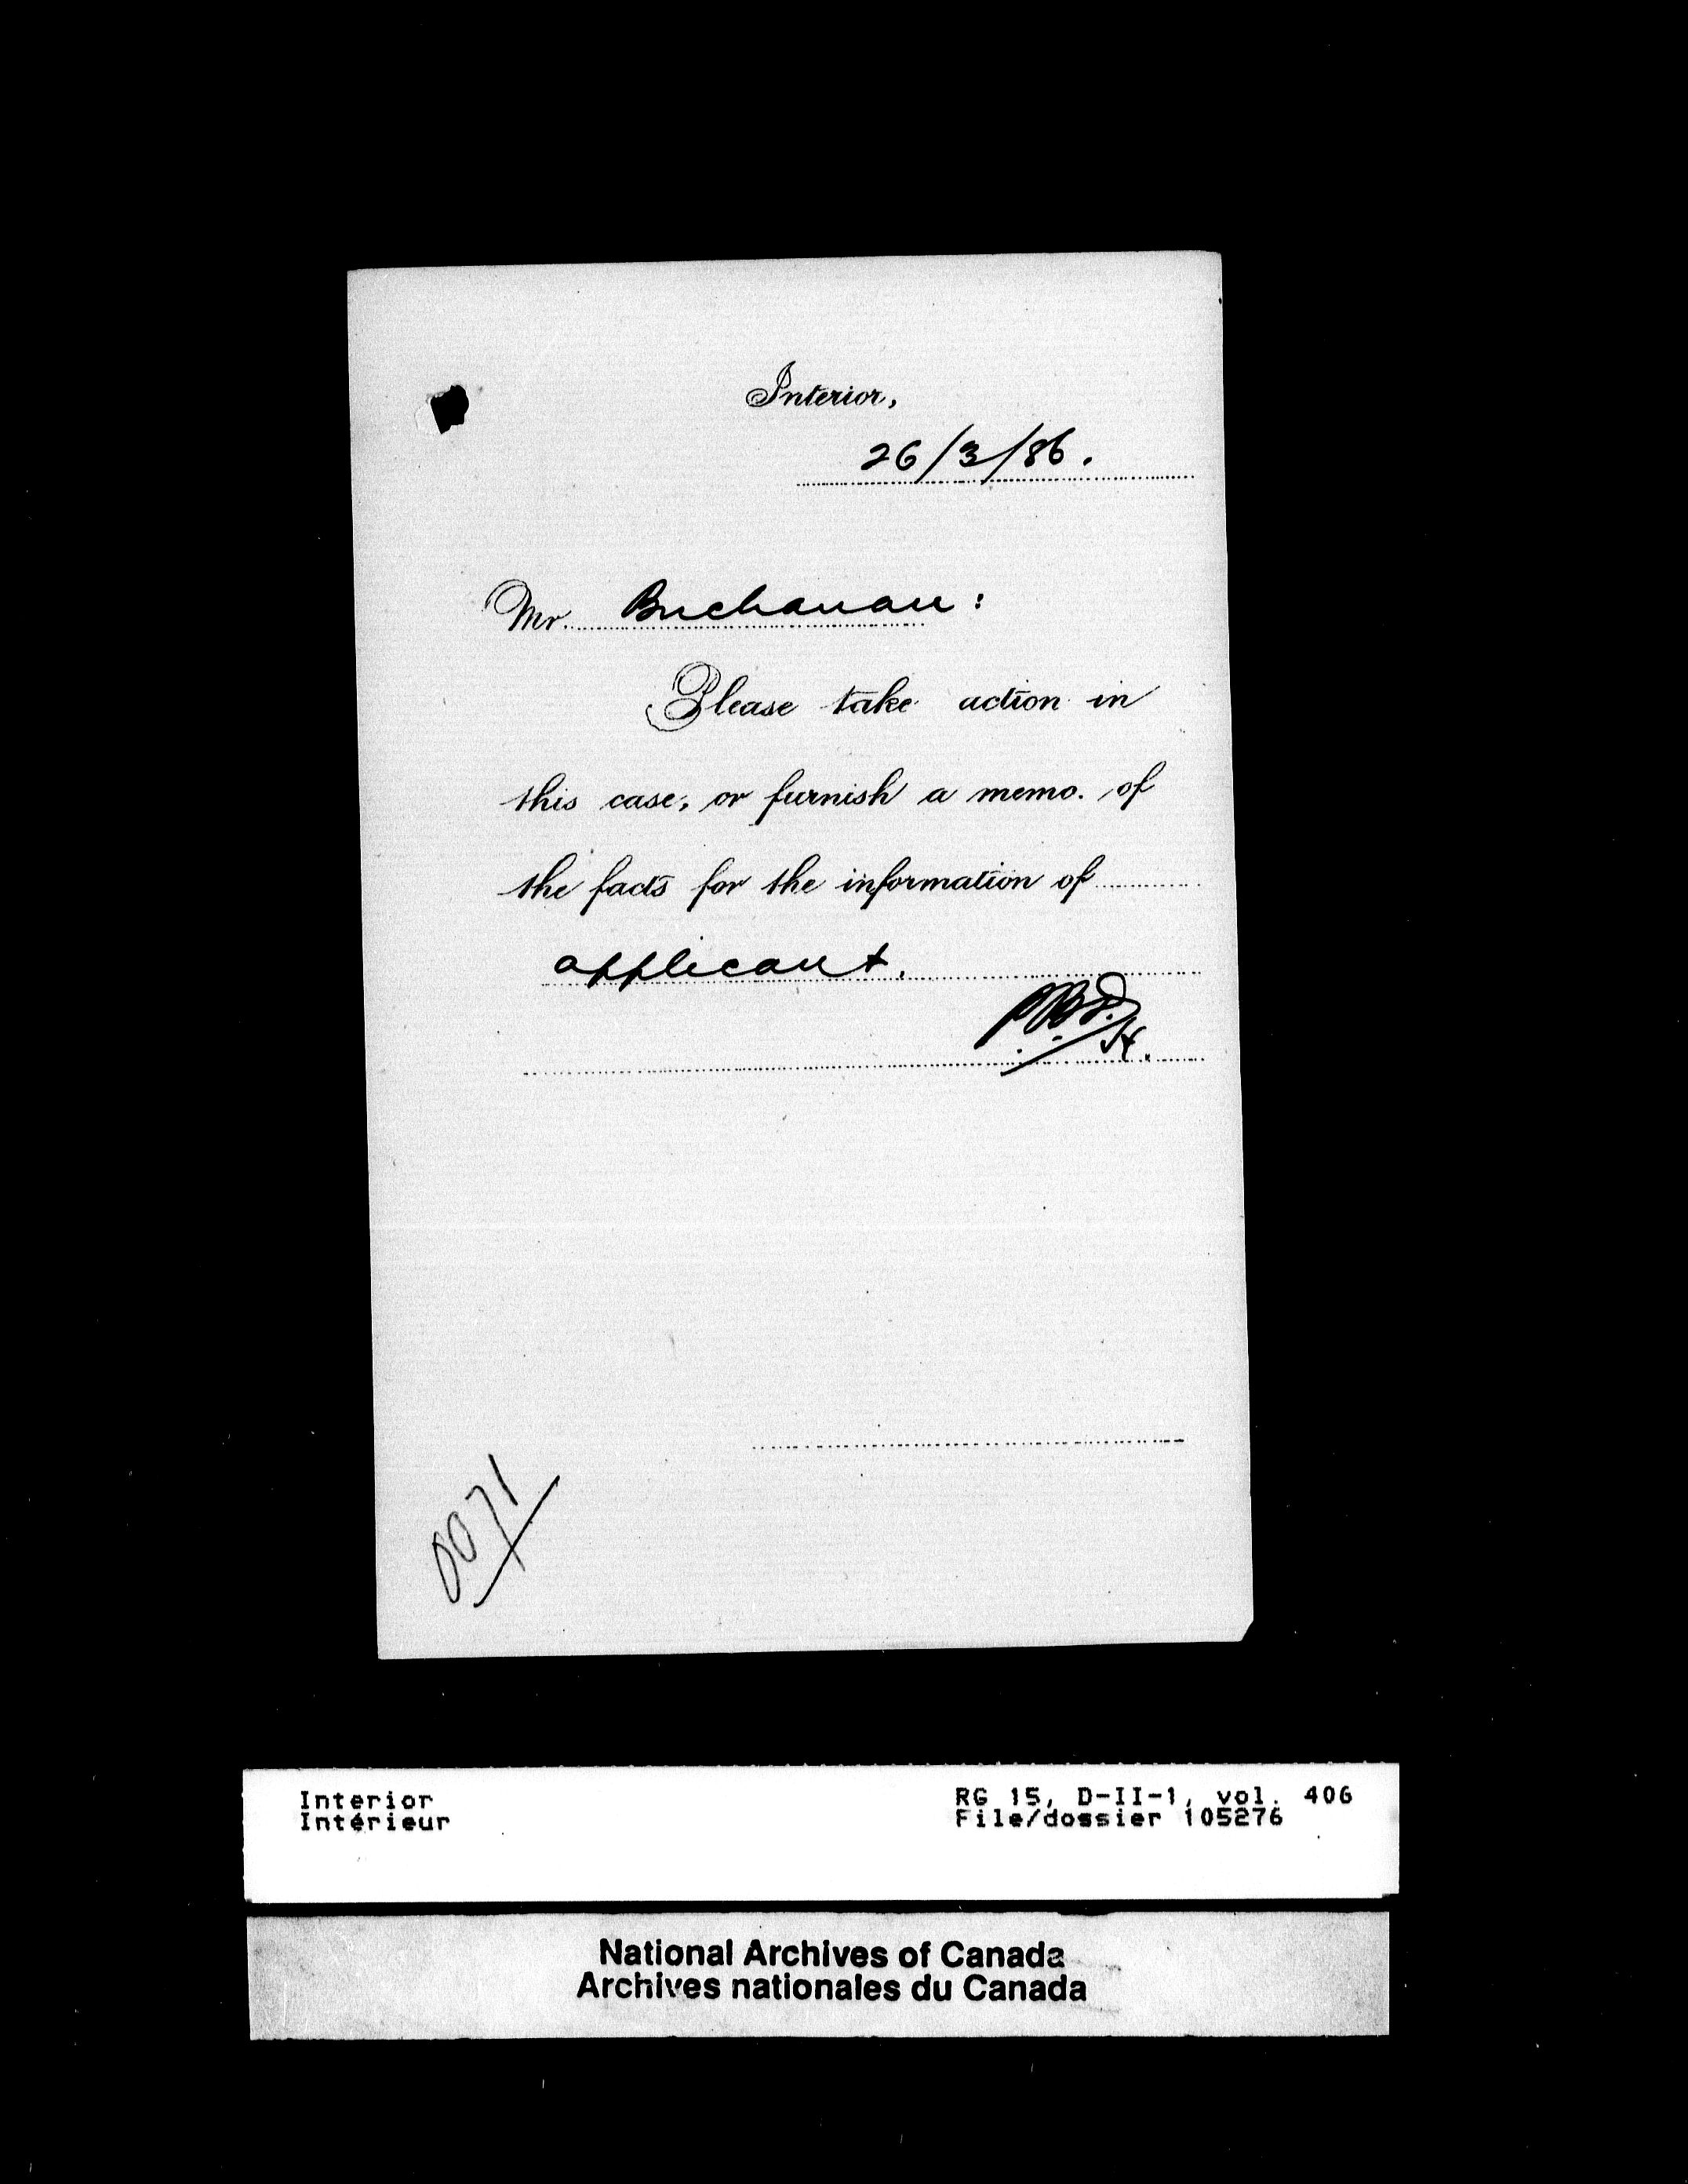 Interior,
26/3/86.
Mr. Buchanan:
Please take action in
this case, or furnish a memo. of
the facts for the information of
applicant.
H.
0071
Interior
Intérieur
RG 15, D-II-1, vol. 406
File/dossier 105276
National Archives of Canada
Archives nationales du Canada